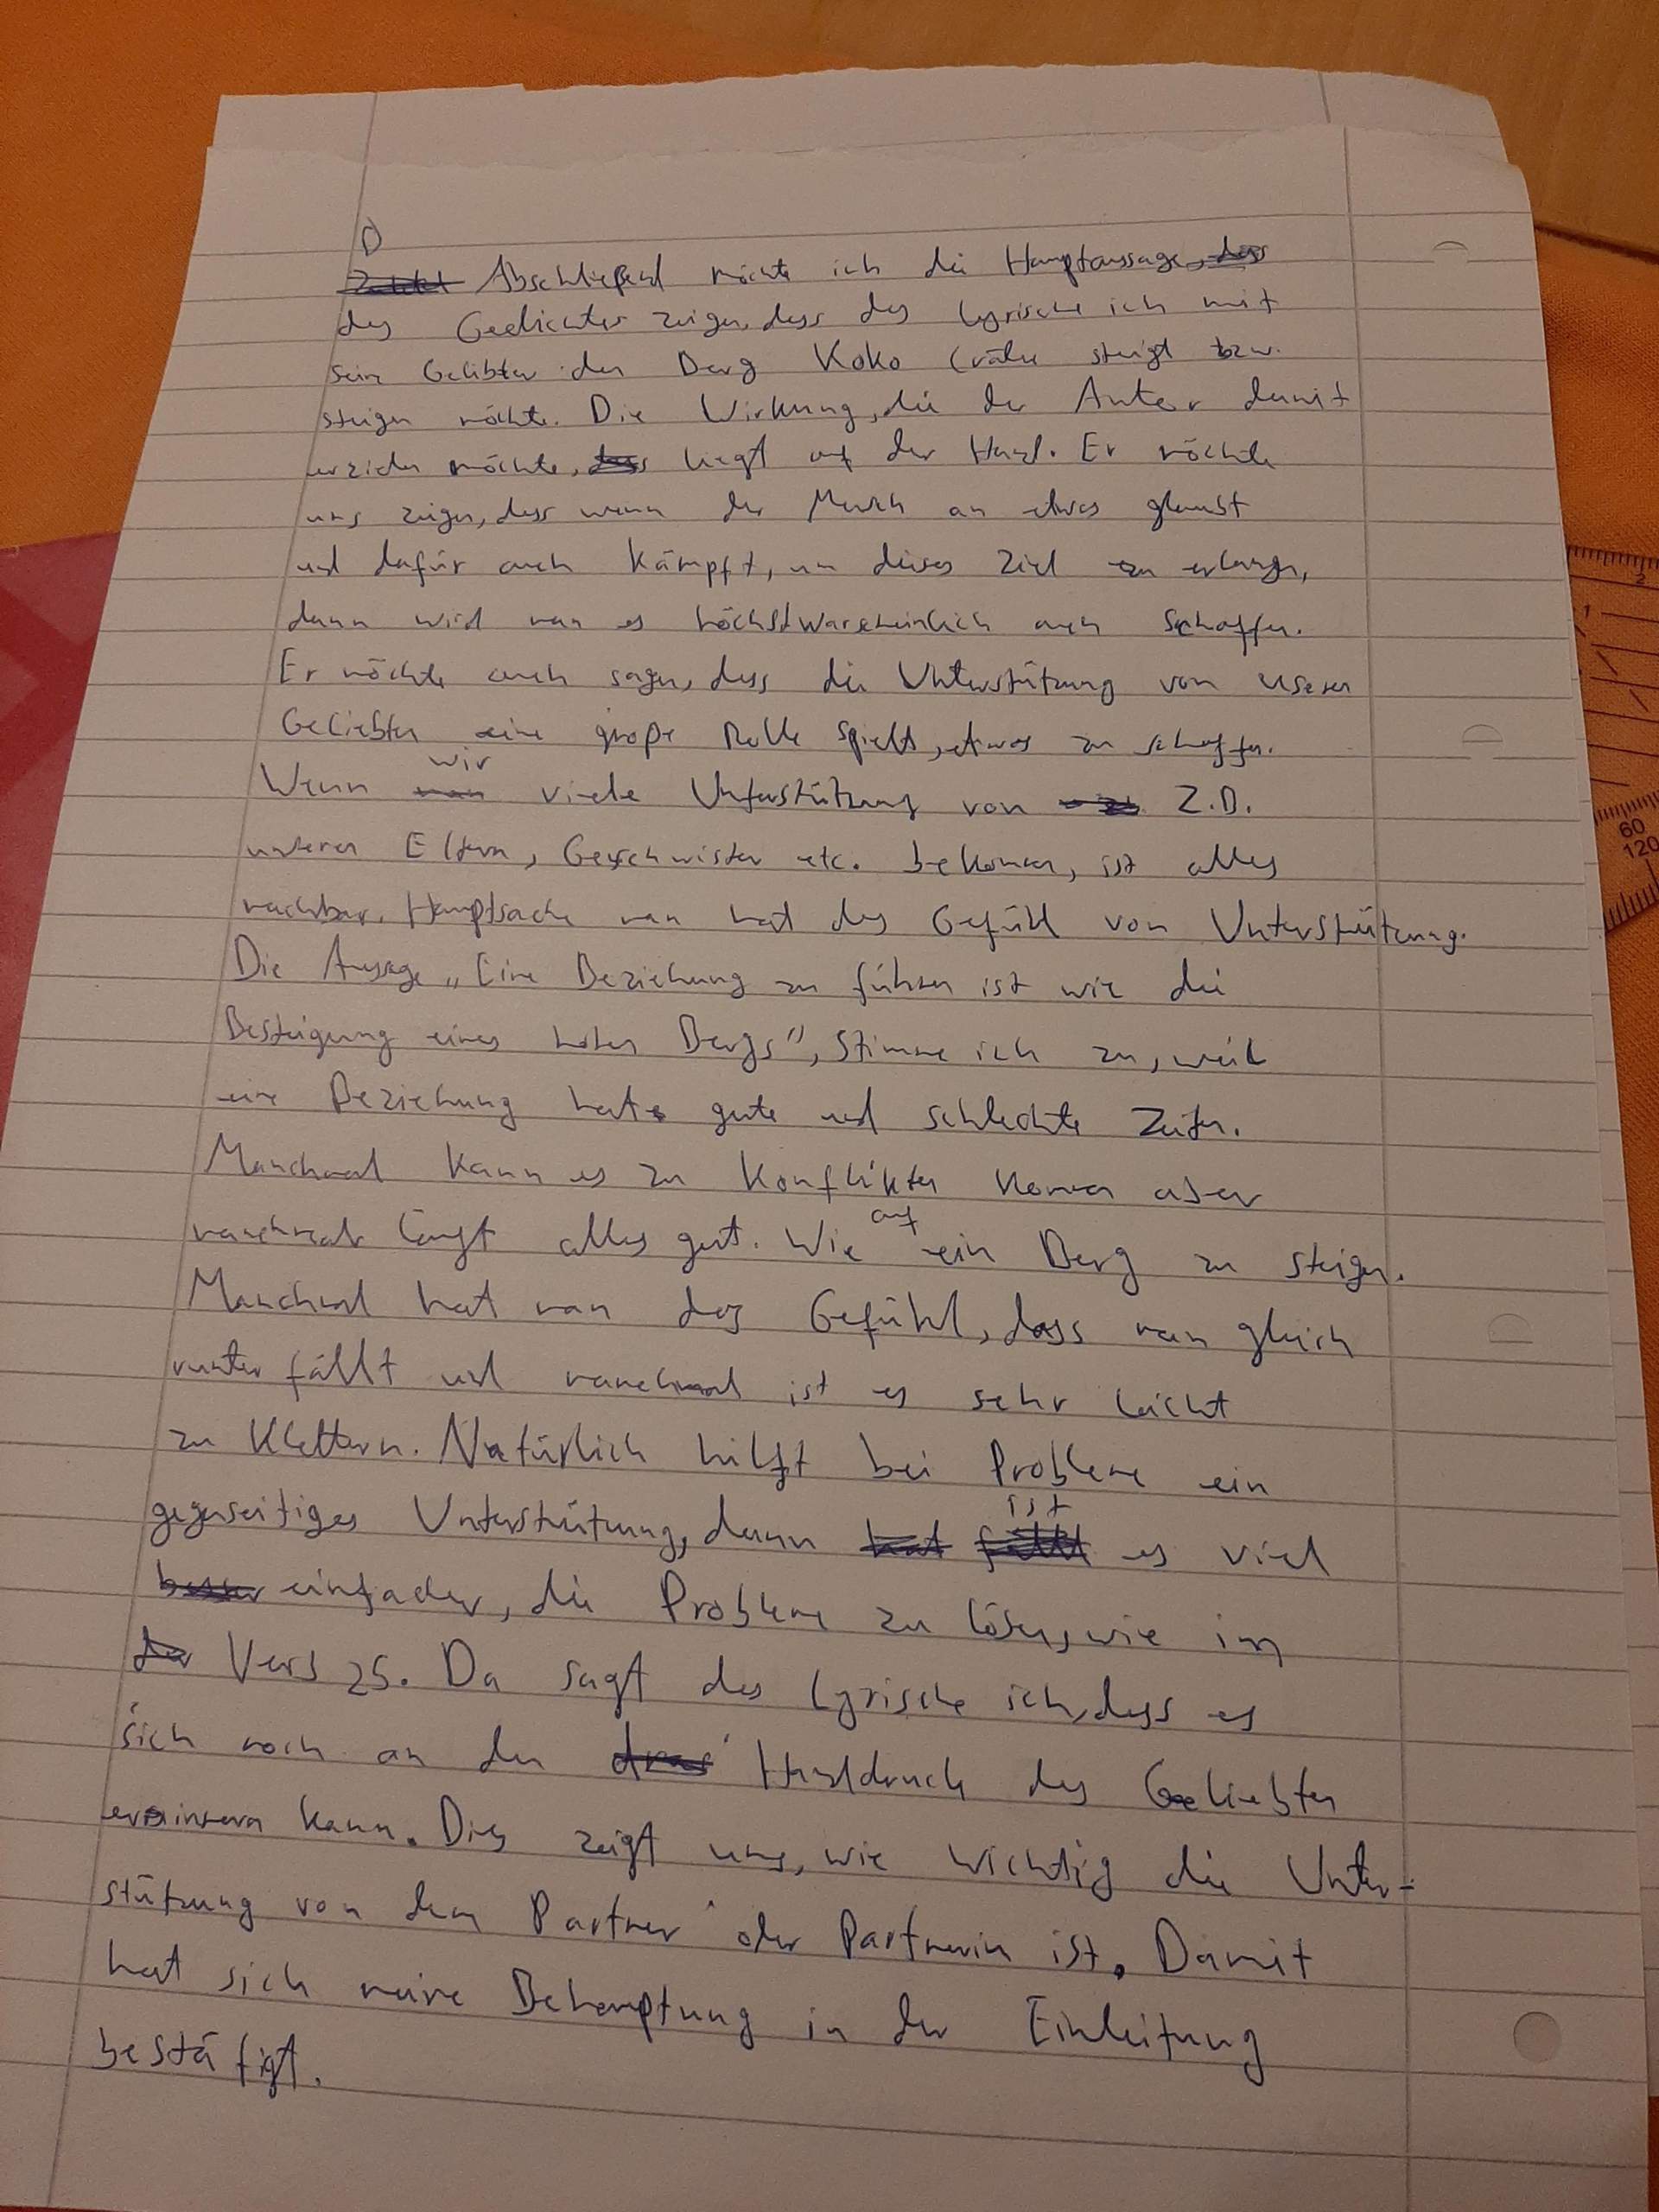 D
Abschließend möchte ich die Hauptaussage,
des Gedichtes zeigen, dass das lyrische ich mit
sein Gelibten den Berg Koko Crater steigt bzw.
steigen möchte. Die Wirkung, die der Autor damit
erzielen möchte, liegt auf der Hand. Er möchte
uns zeigen, dass wenn der Mensch an etwas glaubt
und dafür auch kämpft, um dieses Ziel zu erlangen,
dann wird man es höchstwarscheinlich auch schaffen.
Er möchte auch sagen, dass die Unterstützung von
Geliebten eine große Rolle spielt, etwas zu schaffen.
Wenn wir viele Unterstützung von Z.B.
unseren Eltern, Geschwister etc. bekommen, ist alles
machbar. Hauptsache man hat das Gefühl von Unterstützung.
Die Aussage „Eine Beziehung zu führen ist wie die
Besteigung eines hohen Bergs", stimme ich zu, weil
eine Beziehung hat gute und schlechte Zeiten.
Manchmal kann es zu Konflikten kommen aber
manchmal läuft alles gut. Wie auf ein Berg zu steigen.
Manchmal hat man das Gefühl, dass man gleich
runter fällt und manchmal ist es sehr leicht
zu klettern. Natürlich hilft bei Probleme ein
gegenseitiges Unterstützung, dann ist es viel
einfacher, die Probleme zu lösen, wie im
Vers 25. Da sagt das lyrische ich, dass es
sich noch an den Handdruck des Geliebten
erinnern kann. Dies zeigt uns, wie wichtig die Unter-
stützung von dem Partner oder Partnerin ist. Damit
hat sich meine Behauptung in der Einleitung
bestätigt.
2
1
60
120